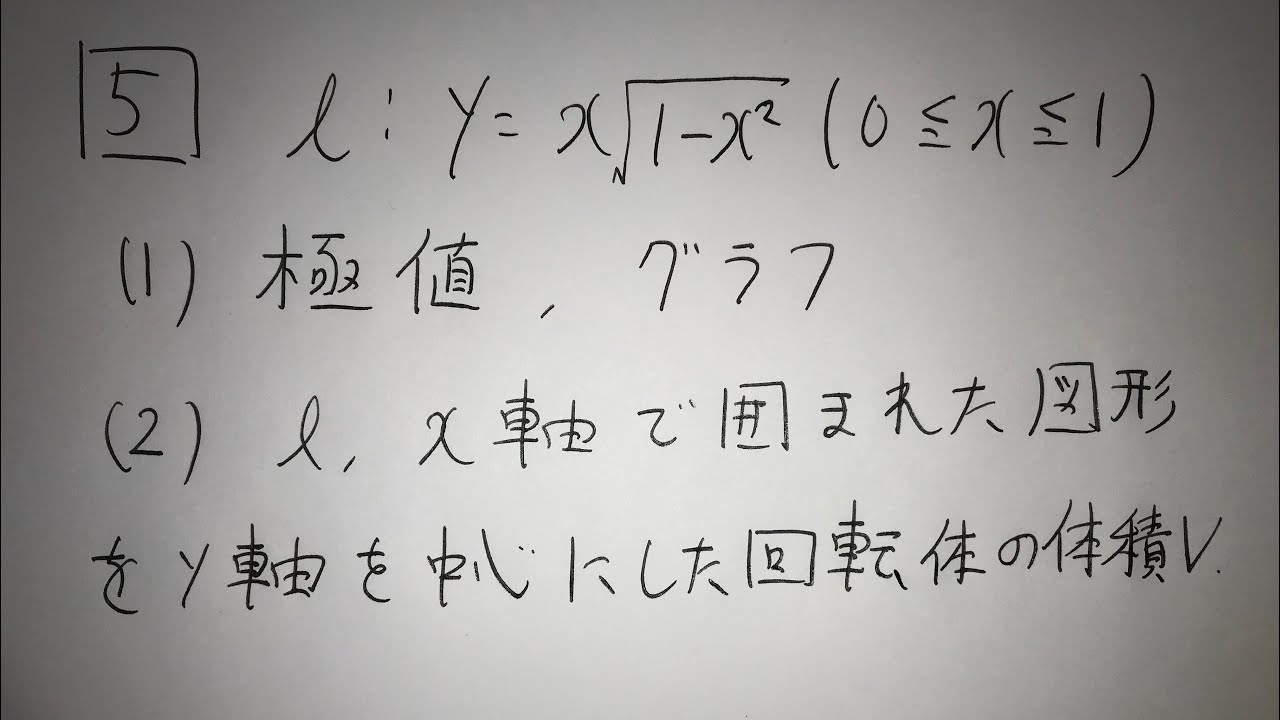 5 l : y = x√1-x² (0 ≦ x ≦ 1)
(1) 極値, グラフ
(2) l, x軸で囲まれた図形
をy軸を中心にした回転体の体積V.